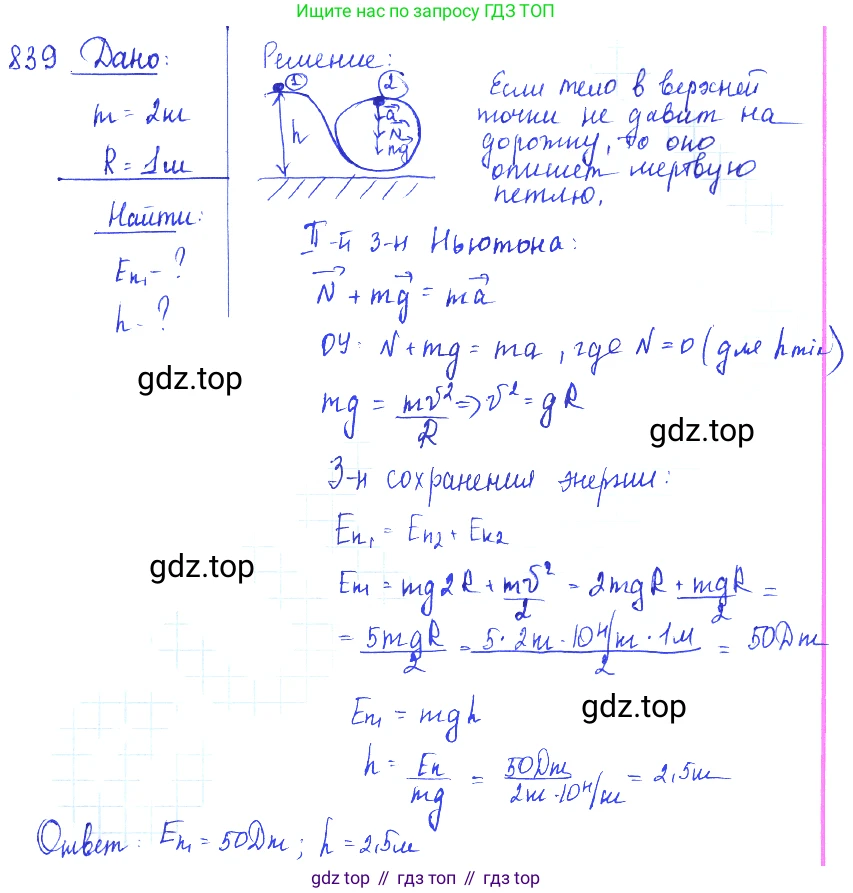 Ищите нас по запросу ГДЗ ТОП
839 Дано:
m = 2кг
R = 1м
Найти:
Eп₁ - ?
h - ?
Решение:
1
2
h
a
N
mg
Если тело в верхней
точки не давит на
дорожку, то оно
опишет мертвую
петлю.
II-й З-н Ньютона:
N + mg = ma
OY: N + mg = ma, где N = 0 (для hmin)
mg = mv²/R => v² = gR
З-н сохранения энергии:
Eп₁ = Eп2 + Eк2
Eп₁ = mg2R + mv²/2 = 2mgR + mgR/2 =
= 5mgR/2 = 5·2кг·10Н/кг·1м/2 = 50Дж
Eп₁ = mgh
h = Eп/mg = 50Дж/2кг·10Н/кг = 2,5м
Ответ: Eп₁ = 50Дж; h = 2,5м
gdz.top
gdz.top
gdz.top
gdz.top
gdz top // гдз топ // gdz top